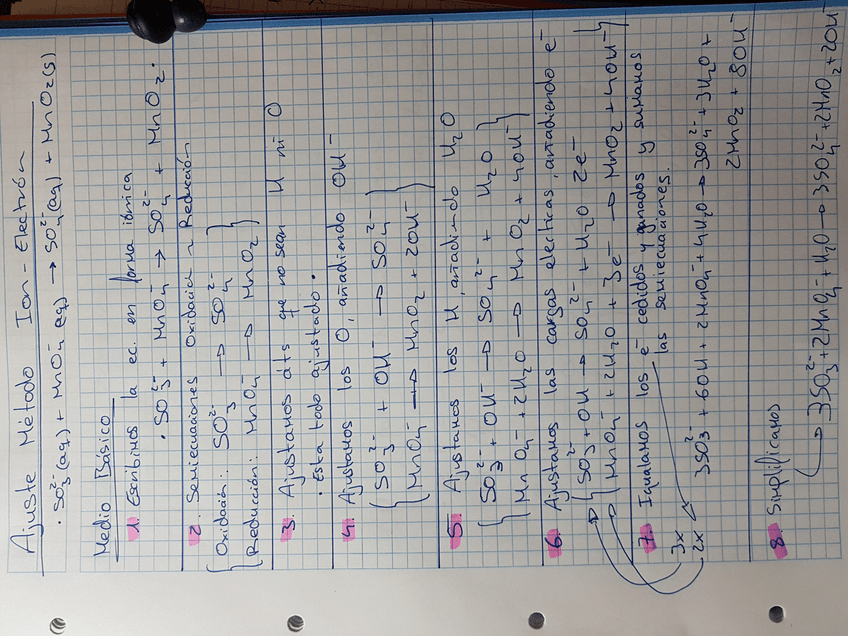 Ajuste Método Ion-Electrón
· SO₃²⁻(aq) + MnO₄⁻(aq) → SO₄²⁻(aq) + MnO₂(s)
Medio Básico
1. Escribimos la ec. en forma iónica
· SO₃²⁻ + MnO₄⁻ → SO₄²⁻ + MnO₂.
2. Semiecuaciones Oxidación y Reducción
Oxidación: SO₃²⁻ → SO₄²⁻
Reducción: MnO₄⁻ → MnO₂
3. Ajustamos áts que no sean H ni O
· Esta todo ajustado.
4. Ajustamos los O, añadiendo OH⁻
SO₃²⁻ + OH⁻ → SO₄²⁻
MnO₄⁻ → MnO₂ + 2OH⁻
5. Ajustamos los H, añadiendo H₂O
SO₃²⁻ + OH⁻ → SO₄²⁻ + H₂O
MnO₄⁻ + 2H₂O → MnO₂ + 4OH⁻
6. Ajustamos las cargas electricas, añadiendo e⁻
SO₃²⁻ + OH → SO₄²⁻ + H₂O 2e⁻
MnO₄⁻ + 2H₂O + 3e⁻ → MnO₂ + 4OH⁻
7. Igualamos los e⁻ cedidos y ganados y sumamos
las semiecuaciones.
3x
2x
3SO₃²⁻ + 6OH + 2MnO₄⁻ + 4H₂O → 3SO₄²⁻ + 3H₂O +
2MnO₂ + 8OH⁻
8. Simplificamos
3SO₃²⁻ + 2MnO₄⁻ + H₂O → 3SO₄²⁻ + 2MnO₂ + 2OH⁻